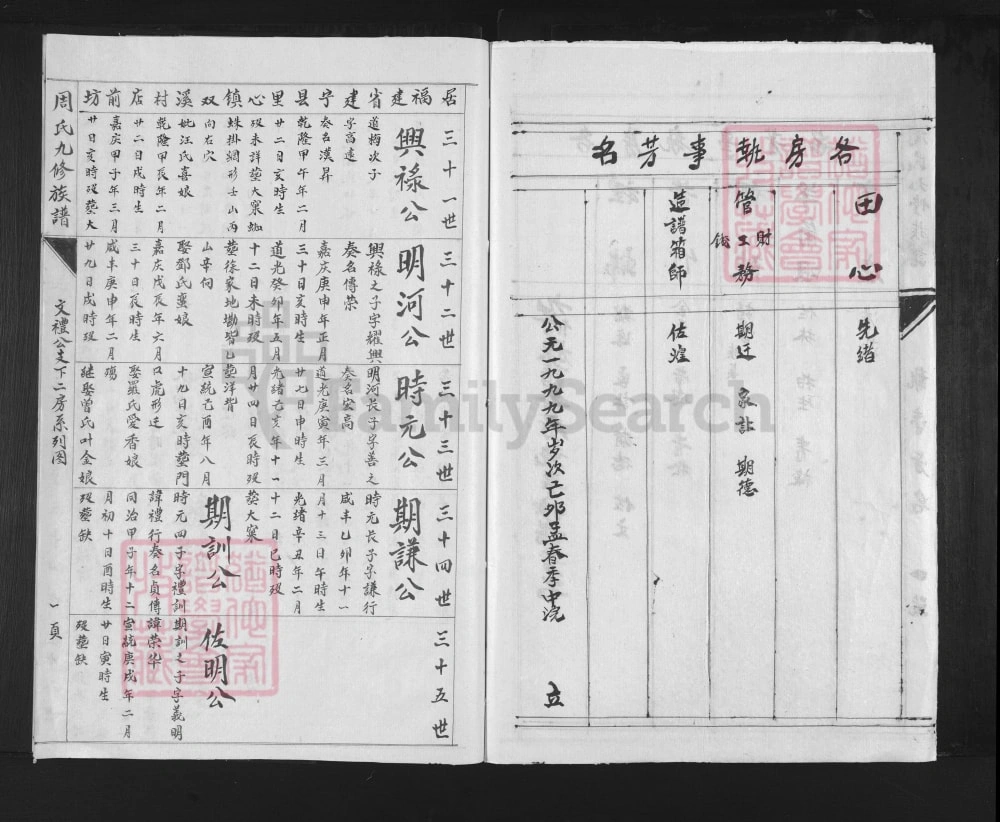 各房執事芳名
田心
先緒
管財工務
錢
期迁 家訓 期德
造譜箱師
佐煌
公元一九九九年岁次己卯孟春季中浣 立
居福建省建宁县里心镇双溪村店前坊
三十一世
興祿公
道梅次子
字高遠
奏名漢昇
乾隆甲午年二月
廿二日亥時生
殁未詳塟大窠蜘
蛛掛網形壬山丙
向右穴
妣汪氏喜娘
乾隆甲辰年二月
廿二日戌時生
嘉庆甲子年三月
廿日亥時殁塟大
三十二世
明河公
興祿之子字耀興
奏名傳荣
嘉庆庚申年正月
三十日亥時生
道光癸卯年五月
十二日未時殁
塟徐家地塅背乙
山辛向
娶鄧氏蛮娘
嘉庆戊辰年六月
三十日辰時生
咸丰庚申年二月
廿九日戌時殁
三十三世
時元公
明河長子字善之
奏名宏高
道光庚寅年三月
廿七日申時生
光緒乙亥年十一
月廿四日辰時殁
塟洋背
宣統乙酉年八月
十九日亥時塟門
口虎形迁
娶羅氏愛香娘
殤
継娶曾氏叶金娘
三十四世
期謙公
時元長子字謙行
咸丰乙卯年十一
月十三日午時生
光緒辛丑年二月
十二日巳時殁
葵大窠
期訓公
時元四子字禮訓
諱禮行奏名貞傳
同治甲子年十二
月初十日酉時生
殁塟缺
三十五世
佐明公
期訓之子字義明
諱荣华
宣統庚戌年二月
廿日寅時生
殁塟缺
周氏九修族譜
文禮公支下二房系列图
一頁
FamilySearch